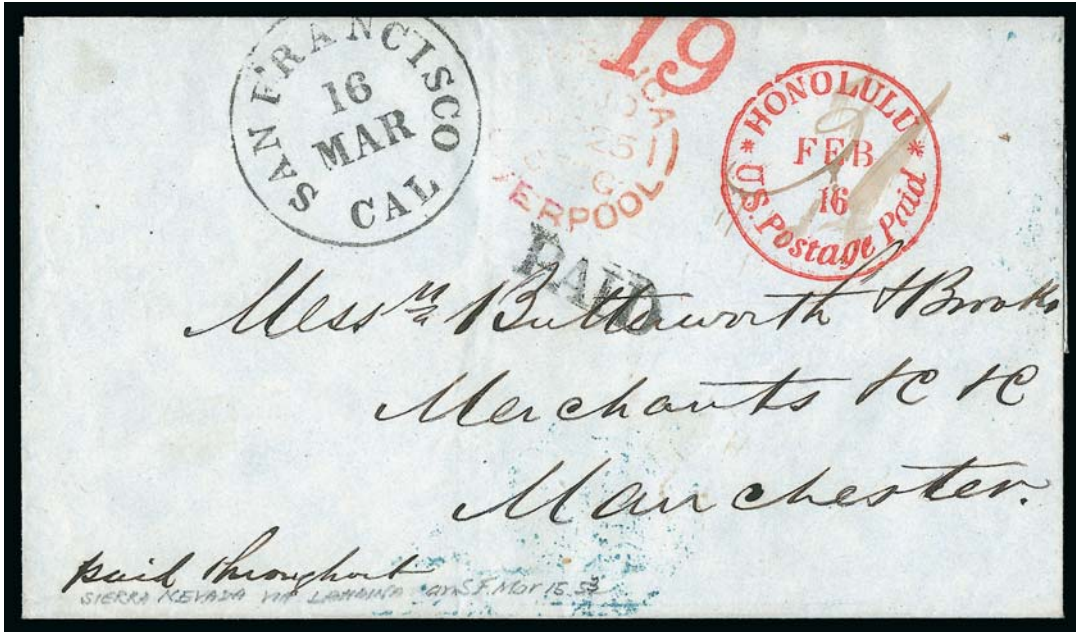 SAN FRANCISCO
16
MAR
CAL
19
25
ERPOOL
HONOLULU
FEB
16
U.S. Postage Paid
PAID
Messrs Butterworth & Brooks
Merchants &C &C
Manchester.
paid throughout
SIERRA NEVADA VIA LAHAINA arr S.F. Mar 15, 53